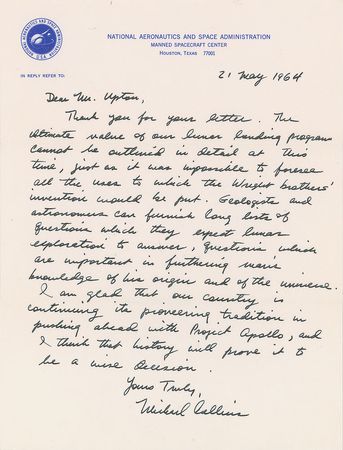 NATIONAL AERONAUTICS AND SPACE ADMINISTRATION
MANNED SPACECRAFT CENTER
HOUSTON, TEXAS 77001
IN REPLY REFER TO:
21 May 1964
Dear Mr. Upton,
Thank you for your letter. The
ultimate value of our lunar landing program
cannot be outlined in detail at this
time, just as it was impossible to foresee
all the uses to which the Wright brothers'
invention would be put. Geologists and
astronomers can furnish long lists of
questions which they expect lunar
exploration to answer, questions which
are important in furthering man's
knowledge of his origin and of the universe.
I am glad that our country is
continuing its pioneering tradition in
pushing ahead with Project Apollo, and
I think that history will prove it to
be a wise decision.
Yours Truly,
Michael Collins